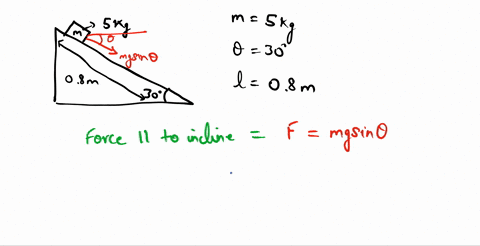 5kg
m
θ
mgsinθ
0.8m
30°
m = 5kg
θ = 30°
l = 0.8m
Force || to incline = F = mgsinθ